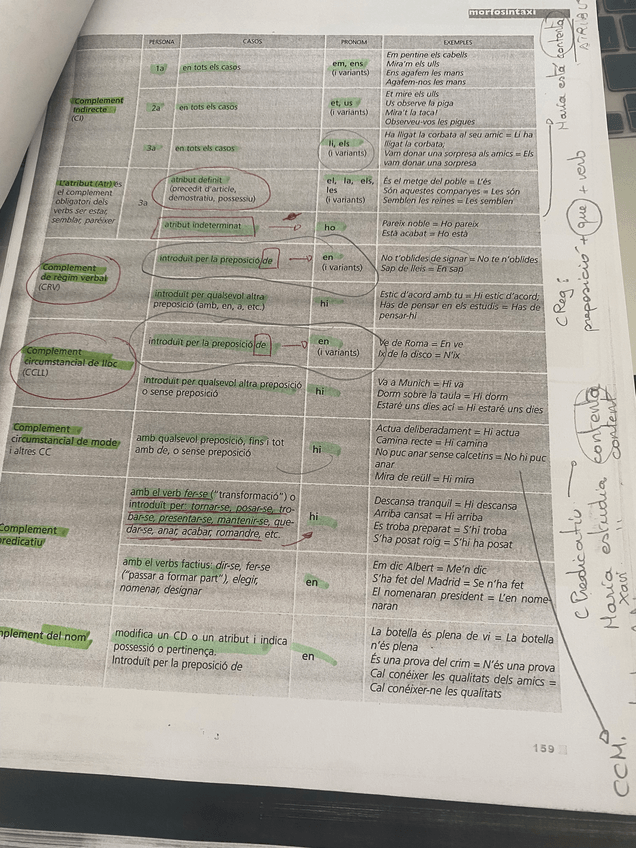 morfosintaxi
PERSONA CASOS PRONOM EXEMPLES
Complement
indirecte
(CI)
1a en tots els casos
em, ens
(i variants)
Em pentine els cabells
Mira'm els ulls
Ens agafem les mans
Agafem-nos les mans
2a en tots els casos
et, us
(i variants)
Et mire els ulls
Us observe la piga
Mira't la taca!
Observeu-vos les pigues
3a en tots els casos
li, els
(i variants)
Ha lligat la corbata al seu amic = Li ha
lligat la corbata;
Vam donar una sorpresa als amics = Els
vam donar una sorpresa
L'atribut (Atr) és
el complement
obligatori dels
verbs ser, estar,
semblar, paréixer
3a
atribut definit
(precedit d'article,
demostratiu, possessiu)
el, la, els,
les
(i variants)
És el metge del poble = L'és
Són aquestes companyes = Les són
Semblen les reines = Les semblen
atribut indeterminat
ho
Pareix noble = Ho pareix
Està acabat = Ho està
Complement
de règim verbal
(CRV)
introduït per la preposició de
en
(i variants)
No t'oblides de signar = No te n'oblides
Sap de lleis = En sap
introduït per qualsevol altra
preposició (amb, en, a, etc.)
hi
Estic d'acord amb tu = Hi estic d'acord;
Has de pensar en els estudis = Has de
pensar-hi
Complement
circumstancial de lloc
(CCLL)
introduït per la preposició de
en
(i variants)
Ve de Roma = En ve
Ix de la disco = N'ix
introduït per qualsevol altra preposició
o sense preposició
hi
Va a Munich = Hi va
Dorm sobre la taula = Hi dorm
Estaré uns dies ací = Hi estaré uns dies
Complement
circumstancial de mode
i altres CC
amb qualsevol preposició, fins i tot
amb de, o sense preposició
hi
Actua deliberadament = Hi actua
Camina recte = Hi camina
No puc anar sense calcetins = No hi puc
anar
Mira de reüll = Hi mira
Complement
predicatiu
amb el verb fer-se ("transformació") o
introduït per: tornar-se, posar-se, tro-
bar-se, presentar-se, mantenir-se, que-
dar-se, anar, acabar, romandre, etc.
hi
Descansa tranquil = Hi descansa
Arriba cansat = Hi arriba
Es troba preparat = S'hi troba
S'ha posat roig = S'hi ha posat
amb els verbs factius: dir-se, fer-se
("passar a formar part"), elegir,
nomenar, designar
en
Em dic Albert = Me'n dic
S'ha fet del Madrid = Se n'ha fet
El nomenaran president = L'en nome-
naran
mplement del nom
modifica un CD o un atribut i indica
possessió o pertinença.
Introduït per la preposició de
en
La botella és plena de vi = La botella
n'és plena
És una prova del crim = N'és una prova
Cal conéixer les qualitats dels amics =
Cal conéixer-ne les qualitats
159
Maria està contenta
ATRIBU
C Regi
preposició + que + verb
C Predicatiu
Maria estudia contenta
Xavi content
CCM.